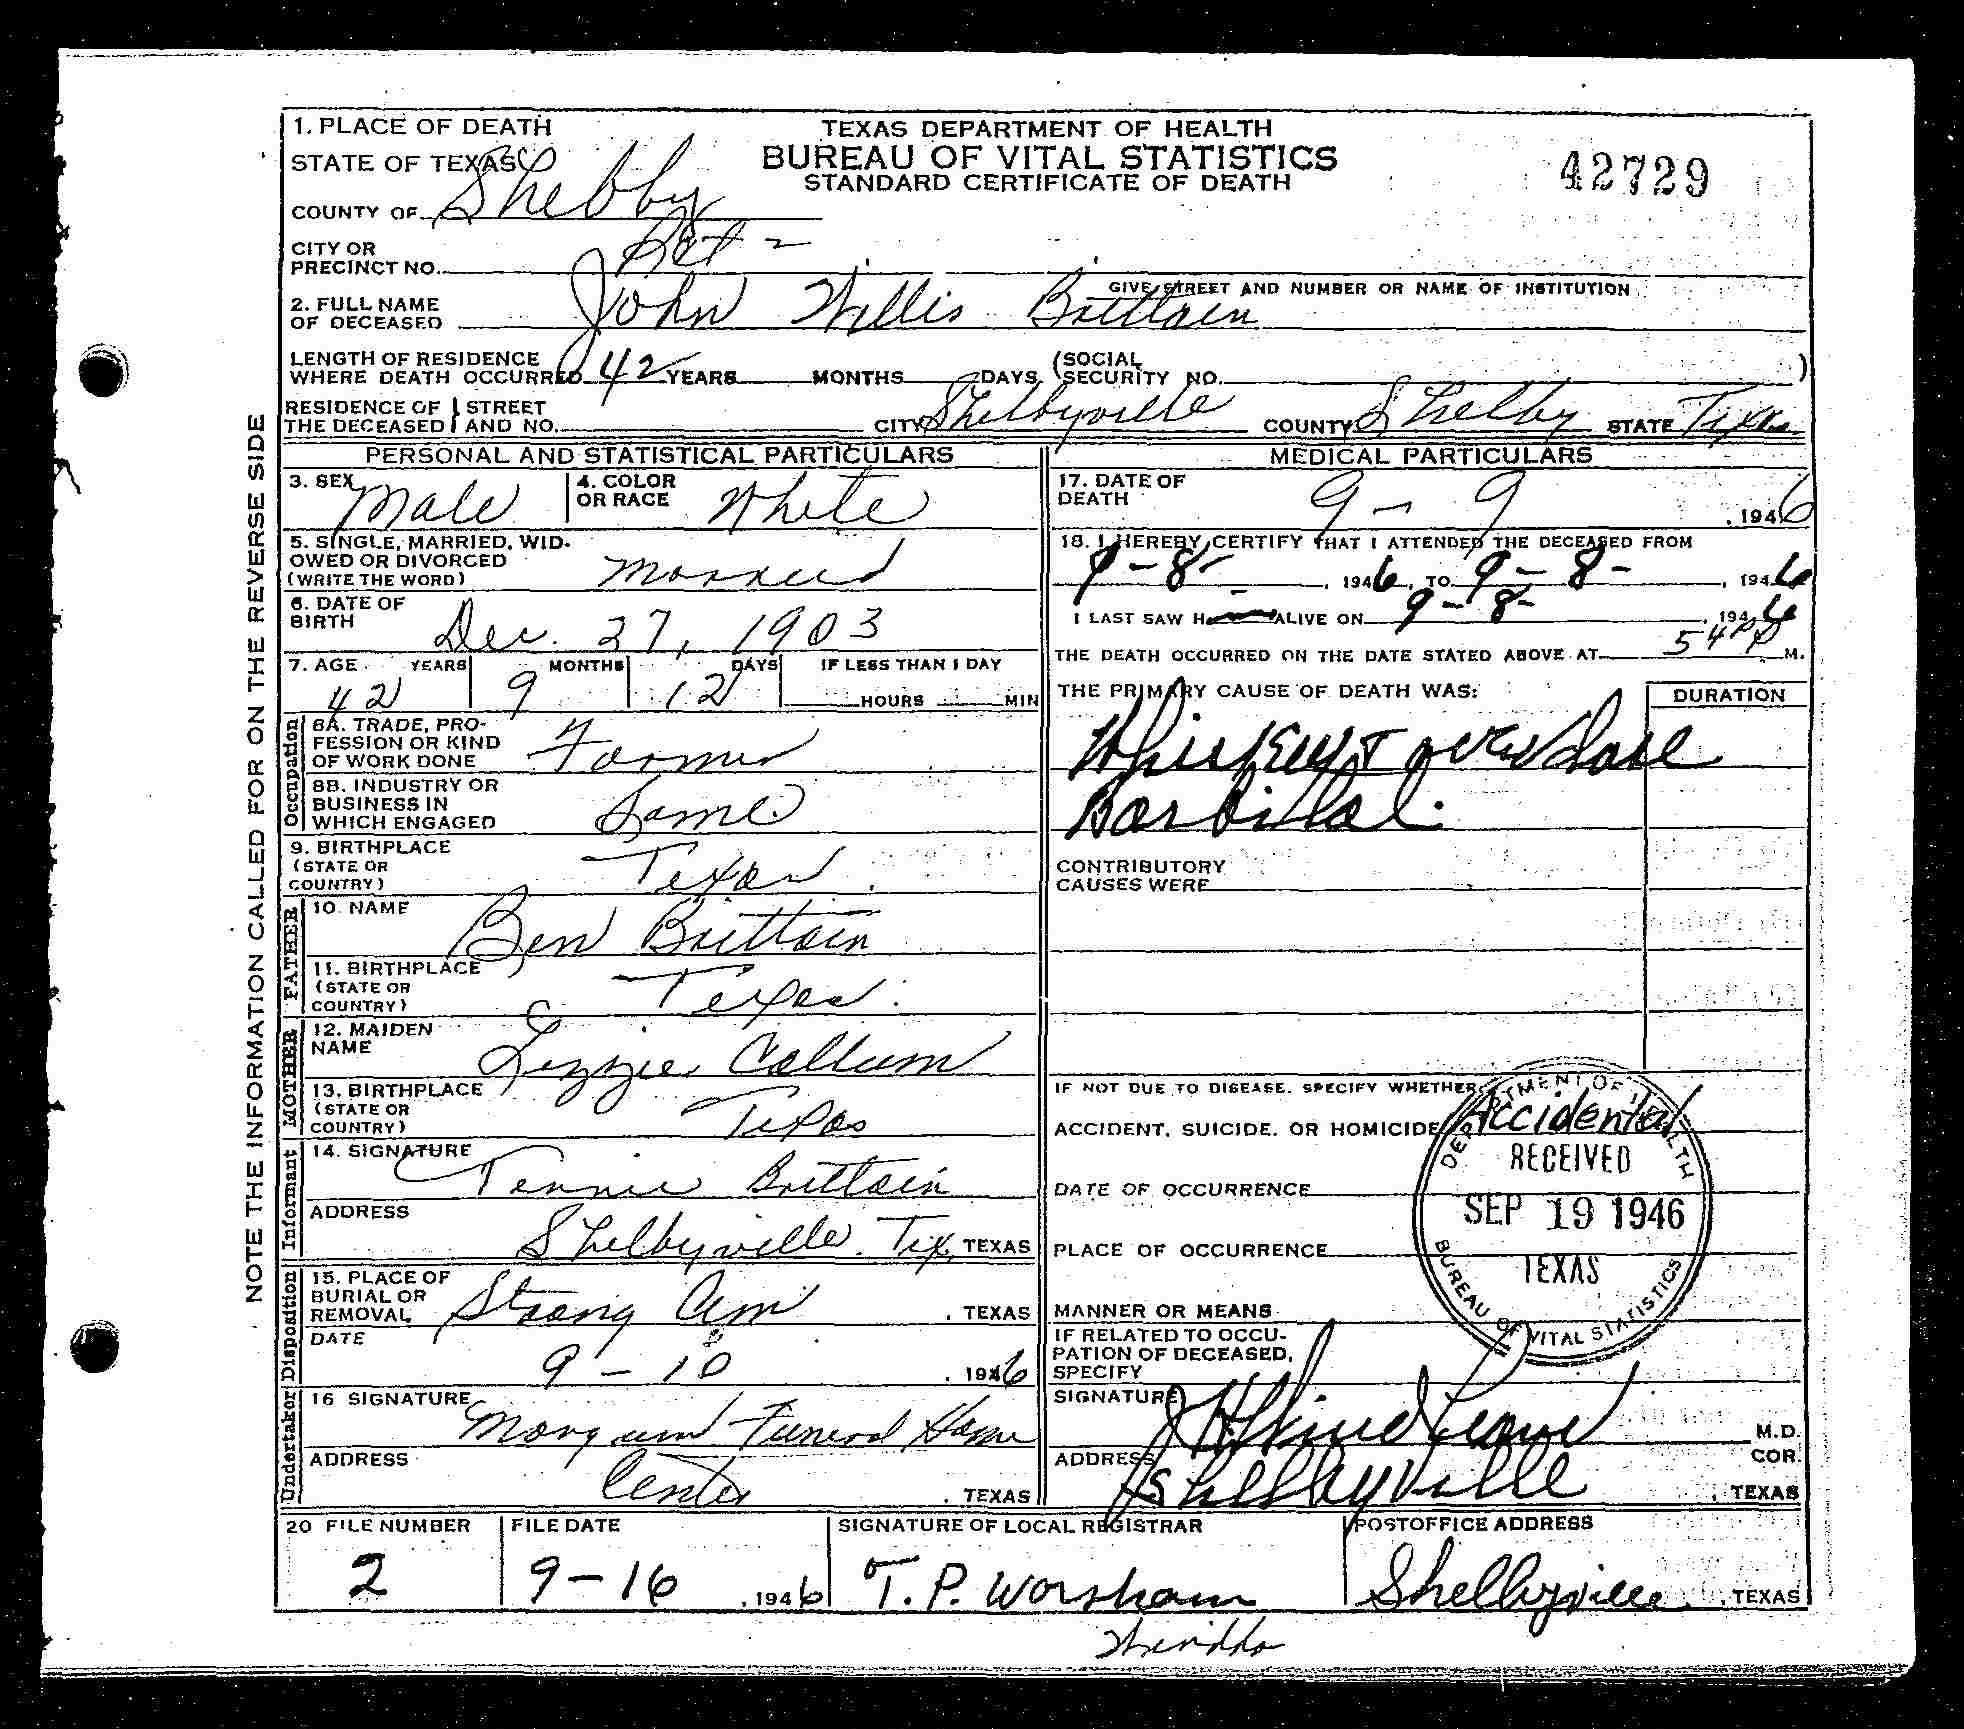 1. PLACE OF DEATH
STATE OF TEXAS
COUNTY OF Shelby
TEXAS DEPARTMENT OF HEALTH
BUREAU OF VITAL STATISTICS
STANDARD CERTIFICATE OF DEATH
42729
CITY OR
PRECINCT NO. Pct 2
GIVE STREET AND NUMBER OR NAME OF INSTITUTION
2. FULL NAME
OF DECEASED John Willis Brittain
LENGTH OF RESIDENCE
WHERE DEATH OCCURRED 42 YEARS MONTHS DAYS (SOCIAL SECURITY NO. )
RESIDENCE OF THE DECEASED STREET AND NO. CITY Shelbyville COUNTY Shelby STATE Texas
NOTE THE INFORMATION CALLED FOR ON THE REVERSE SIDE
PERSONAL AND STATISTICAL PARTICULARS
3. SEX Male
4. COLOR OR RACE White
5. SINGLE, MARRIED, WID-
OWED OR DIVORCED
(WRITE THE WORD) Married
6. DATE OF
BIRTH Dec. 27, 1903
7. AGE YEARS MONTHS DAYS IF LESS THAN 1 DAY
42 9 12 HOURS MIN
Occupation
8A. TRADE, PRO-
FESSION OR KIND
OF WORK DONE Farmer
8B. INDUSTRY OR
BUSINESS IN
WHICH ENGAGED Same
9. BIRTHPLACE
(STATE OR
COUNTRY) Texas
FATHER
10. NAME Ben Brittain
11. BIRTHPLACE
(STATE OR
COUNTRY) Texas
MOTHER
12. MAIDEN
NAME Lizzie Callum
13. BIRTHPLACE
(STATE OR
COUNTRY) Texas
Informant
14. SIGNATURE Tennie Brittain
ADDRESS
Shelbyville Tex, TEXAS
Disposition
15. PLACE OF
BURIAL OR
REMOVAL Strong Cem , TEXAS
DATE
9-10 , 1946
Undertaker
16 SIGNATURE Mangum Funeral Home
ADDRESS Center , TEXAS
MEDICAL PARTICULARS
17. DATE OF
DEATH 9-9 , 1946
18. I HEREBY CERTIFY THAT I ATTENDED THE DECEASED FROM
9-8- , 1946, TO 9-8- , 1946
I LAST SAW H ALIVE ON 9-8- , 1946
THE DEATH OCCURRED ON THE DATE STATED ABOVE AT M.
THE PRIMARY CAUSE OF DEATH WAS: DURATION
Whiskey & overdose
Barbital.
CONTRIBUTORY
CAUSES WERE
IF NOT DUE TO DISEASE, SPECIFY WHETHER
ACCIDENT, SUICIDE, OR HOMICIDE Accidental
DATE OF OCCURRENCE
PLACE OF OCCURRENCE
MANNER OR MEANS
DEPARTMENT OF HEALTH
RECEIVED
SEP 19 1946
TEXAS
BUREAU OF VITAL STATISTICS
IF RELATED TO OCCU-
PATION OF DECEASED,
SPECIFY
SIGNATURE M.D.
COR.
ADDRESS Shelbyville , TEXAS
20 FILE NUMBER FILE DATE SIGNATURE OF LOCAL REGISTRAR POSTOFFICE ADDRESS
2 9-16 , 1946 T. P. Worsham Shelbyville , TEXAS